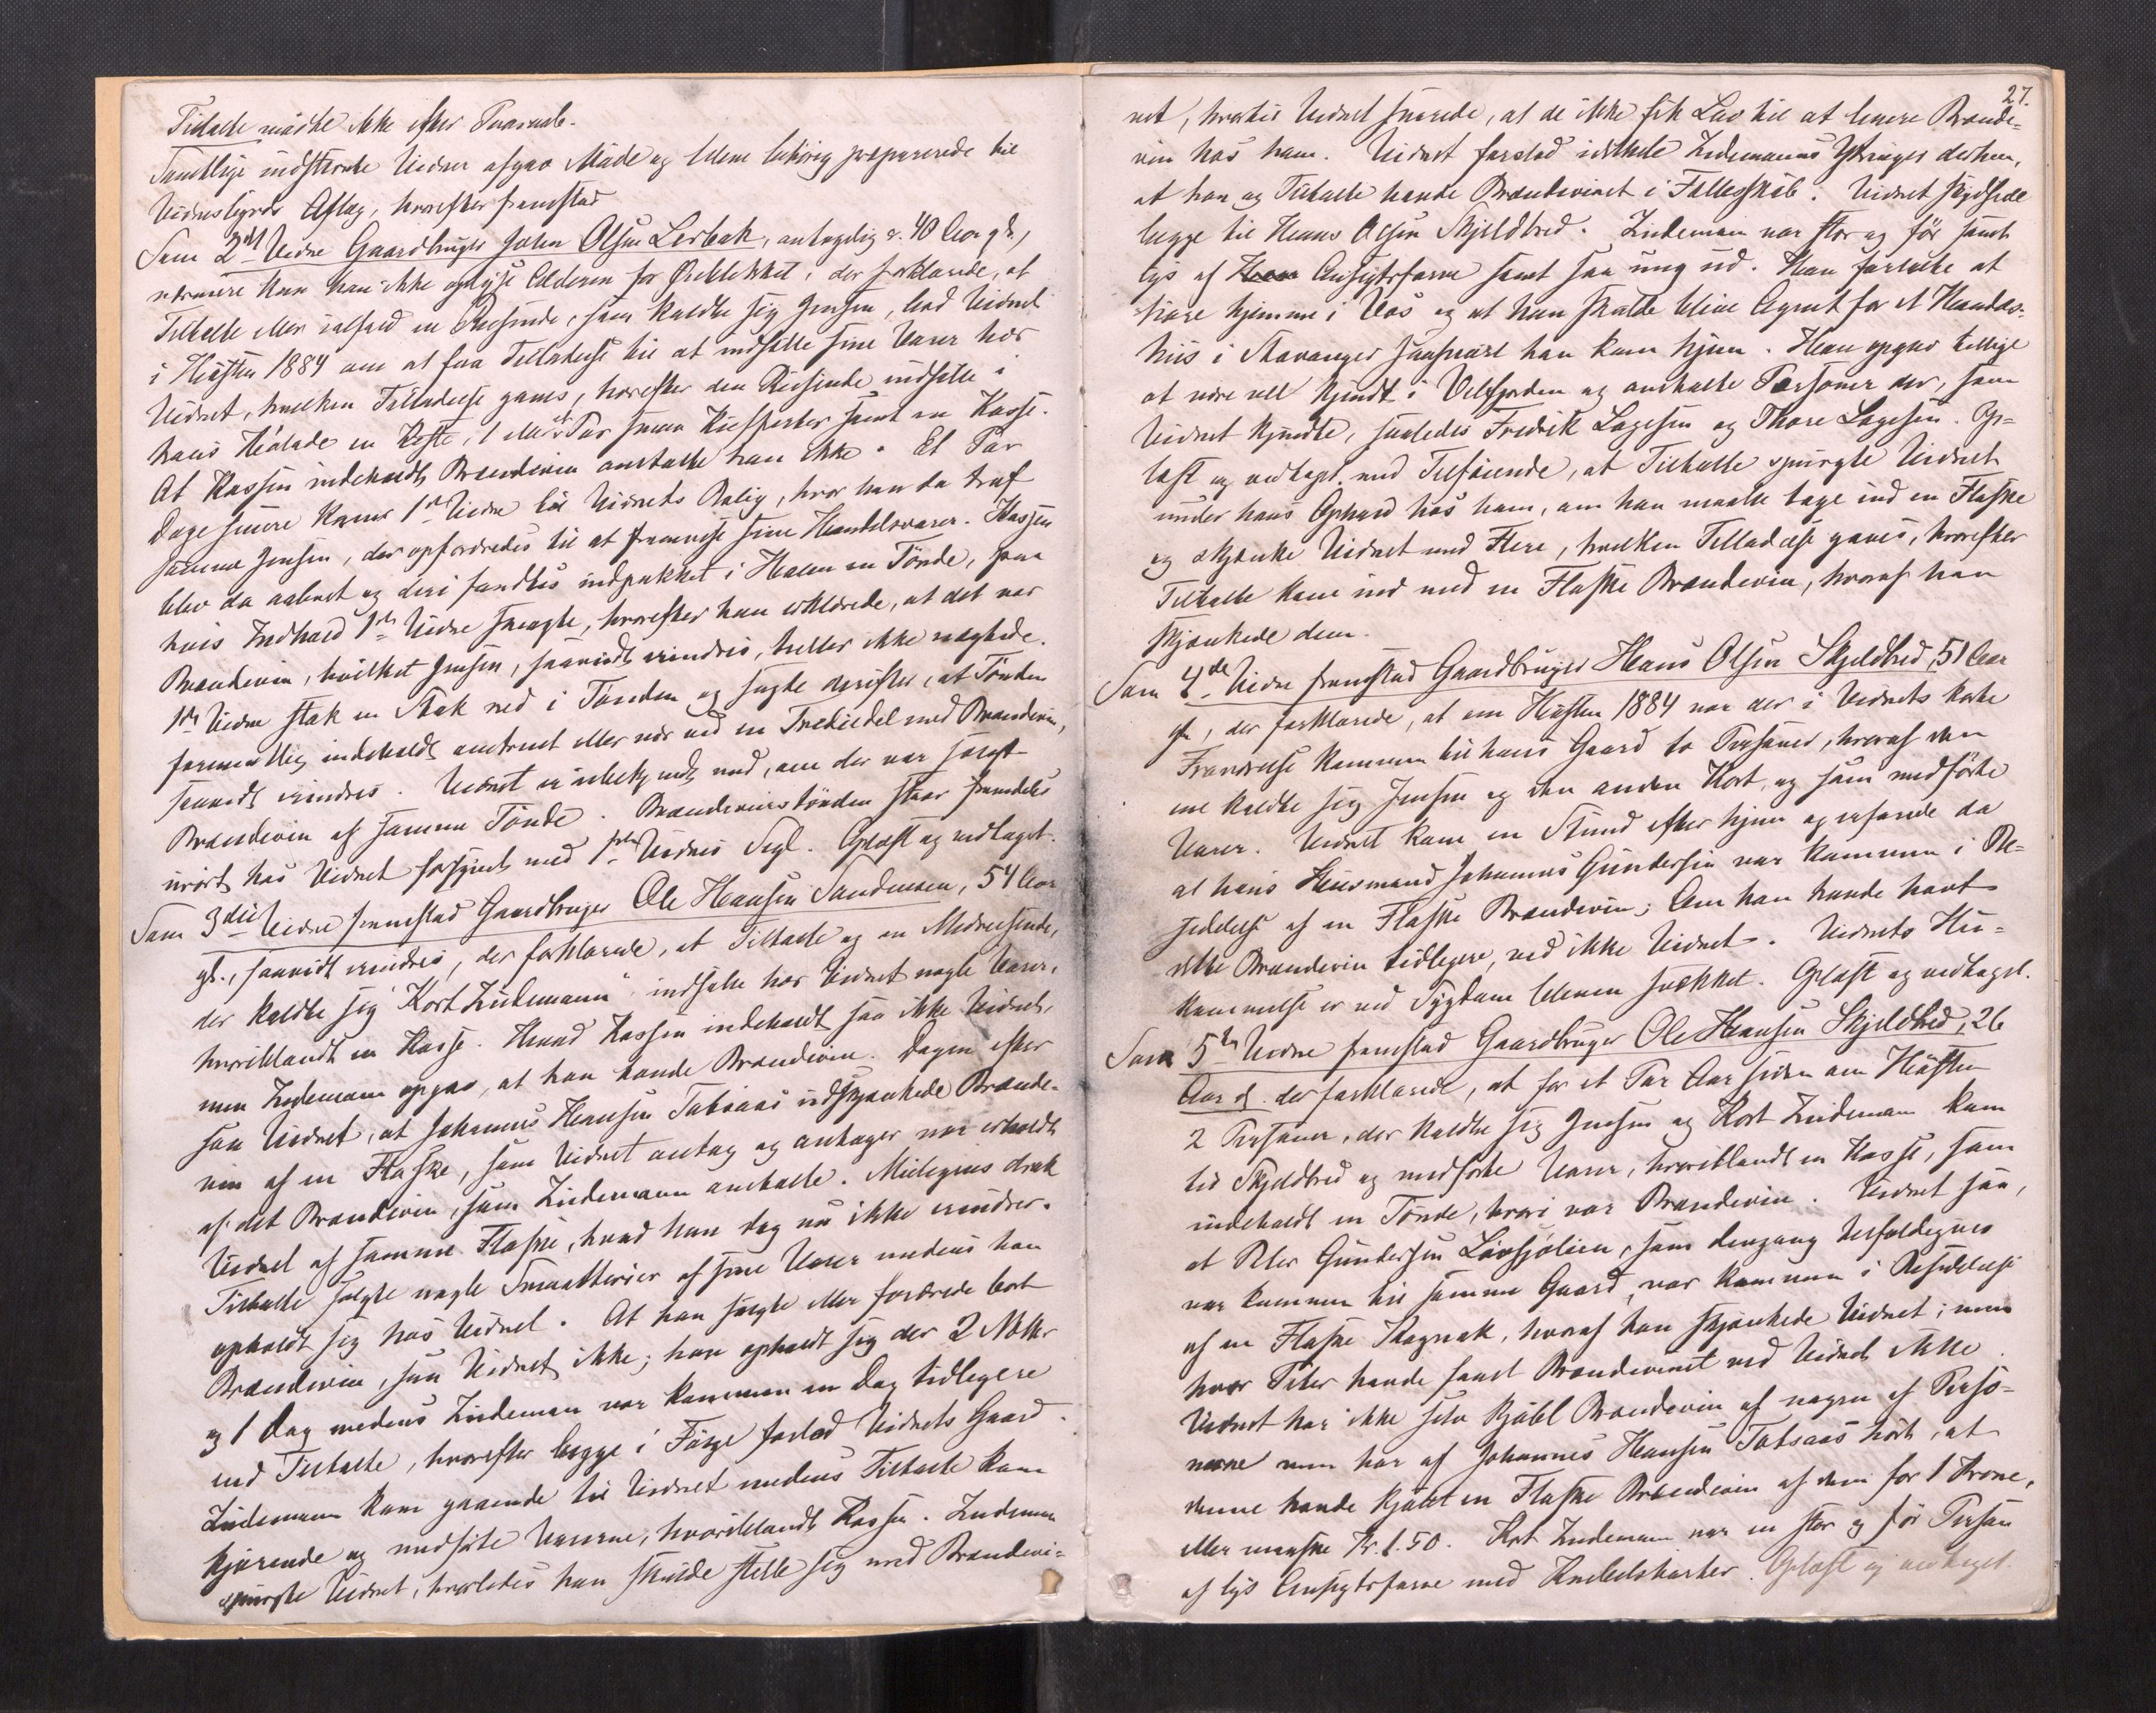 Tiltalte mødte ikke efter Paaraab.
Samtlige indstevnte Vidner afgav Møde og bleve behørig præparerede til
Vidnesbyrds Aflæg, hvorefter fremstod
Som 2det Vidne Gaardbruger Johan Olsen Lerbak, antagelig c. 40 Aar gl.,
nærmere kan han ikke opgive Alderen for Øieblikket, der forklarede, at
Tiltalte eller ialfald en Reisende, som kaldte sig Jensen, bad Vidnet
i Høsten 1884 om at faa Tilladelse til at indsætte sine Varer hos
Vidnet, hvilken Tilladelse gaves, hvorefter den Reisende indsatte i
hans Hølade en Kiste, 1 eller et Par smaa Kufferter samt en Kasse.
At Kassen indeholdt Brændevin omtalte han ikke. Et Par
Dage senere kom 1ste Vidne til Vidnets Bolig, hvor han da traf
samme Jensen, der opfordredes til at fremvise sine Handelsvarer. Kassen
blev da aabnet og deri fandtes indpakket i Halm en Tønde, paa
hvis Indhold 1ste Vidne smagte, hvorefter han erklærede, at det var
Brændevin, hvilket Jensen, saavidt erindres, heller ikke nægtede.
1ste Vidne stak en Stok ned i Tønden og sagde derefter, at Tønden
formentlig indeholdt omtrent eller nær ved en Trediedel med Brændevin,
saavidt erindres. Vidnet er ubekjendt med, om der var solgt
Brændevin af samme Tønde. Brændevinstønden staar fremdeles
urørt hos Vidnet forsynet med 1ste Vidnes Segl. Oplæst og vedtaget.
Som 3die Vidne fremstod Gaardbruger Ole Hansen Sandmoen, 54 Aar
gl., saavidt erindres, der forklarede, at Tiltalte og en Medreisende,
der kaldte sig "Kort Lindemann" indsatte hos Vidnet nogle Varer,
hvoriblandt en Kasse. Hvad Kassen indeholdt saa ikke Vidnet,
men Lindemann opgav, at han havde Brændevin. Dagen efter
saa Vidnet, at Johannes Hansen Tobaas udskjænkede Brænde-
vin af en Flaske, som Vidnet antog og antager var erholdt
af det Brændevin, som Lindemann omtalte. Muligens drak
Vidnet af samme Flaske, hvad han dog nu ikke erindrer.
Tiltalte solgte nogle Smaatterier af sine Varer medens han
opholdt sig hos Vidnet. At han solgte eller forærede bort
Brændevin, saa Vidnet ikke; han opholdt sig der 2 Nætter
og 1 Dag medens Lindeman var kommen en Dag tidligere
end Tiltalte, hvorefter begge i Følge forlod Vidnets Gaard.
Lindemann kom gaaende til Vidnet medens Tiltalte kom
kjørende og medførte Varerne, hvoriblandt Kassen. Lindeman
spurgte Vidnet, hvorledes han skulde stelle sig med Brændevi-
27.
net, hvortil Vidnet svarede, at de ikke fik Lov til at levere Brænde-
vin hos ham. Vidnet forstod Lindemanns Ytringer derhen,
at han og Tiltalte havde Brændevinet i Fællesskab. Vidnet skydsede
begge til Hans Olsen Skjeldbred. Lindeman var stor og før samt
lys af Ansigtsfarve samt saa ung ud. Han fortalte at
høre hjemme i Vos og at han skulde blive Agent for et Handels-
huus i Stavanger saasnart han kom hjem. Han opgav tillige
at være vel kjendt i Velfjorden og omtalte Personer der, som
Vidnet kjendte, saaledes Fredrik Lagesen og Thore Lagesen. Op-
læst og vedtaget med Tilføiende, at Tiltalte spurgte Vidnet
under hans Ophold hos ham, om han maatte tage ind en Flaske
og skjænke Vidnet med Flere, hvilken Tilladelse gaves, hvorefter
Tiltalte kom ind med en Flaske Brændevin, hvoraf han
skjænkede dem.
Som 4de Vidne fremstod Gaardbruger Hans Olsen Skjeldbred, 51 Aar
gl., der forklarede, at om Høsten 1884 var der i Vidnets korte
Fraværelse kommen til hans Gaard to Personer, hvoraf den
ene kaldte sig Jensen og den anden Kort, og som medførte
Varer. Vidnet kom en Stund efter hjem og erfarede da
at hans Huusmand Johannes Gundersen var kommen i Be-
siddelse af en Flaske Brændevin; Om han havde havt
dette Brændevin tidligere, ved ikke Vidnet. Vidnets Hu-
kommelse er ved Sygdom bleven svækket. Oplæst og vedtaget.
Som 5te Vidne fremstod Gaardbruger Ole Hansen Skjeldbred, 26
Aar gl. der forklarede, at for et Par Aar siden om Høsten
2 Personer, der kaldte sig Jensen og Kort Lindemann kom
til Skjeldbred og medførte Varer, hvoriblandt en Kasse, som
indeholdt en Tønde, hvori var Brændevin. Vidnet saa,
at Peter Gundersen Løvsjølien, som dengang tilfældigvis
var kommen til samme Gaard, var kommen i Besiddelse
af en Flaske Kognak, hvoraf han skjænkede Vidnet; men
hvor Peter havde faaet Brændevinet ved Vidnet ikke.
Vidnet har ikke selv kjøbt Brændevin af nogen af Perso-
nerne men har af Johannes Hansen Tobaas hørt, at
denne havde kjøbt en Flaske Brændevin af dem for 1 Krone,
eller maaske Kr. 1.50. Kort Lindemann var en stor og før Person
af lys Ansigtsfarve med Knebelsbarter. Oplæst og vedtaget.